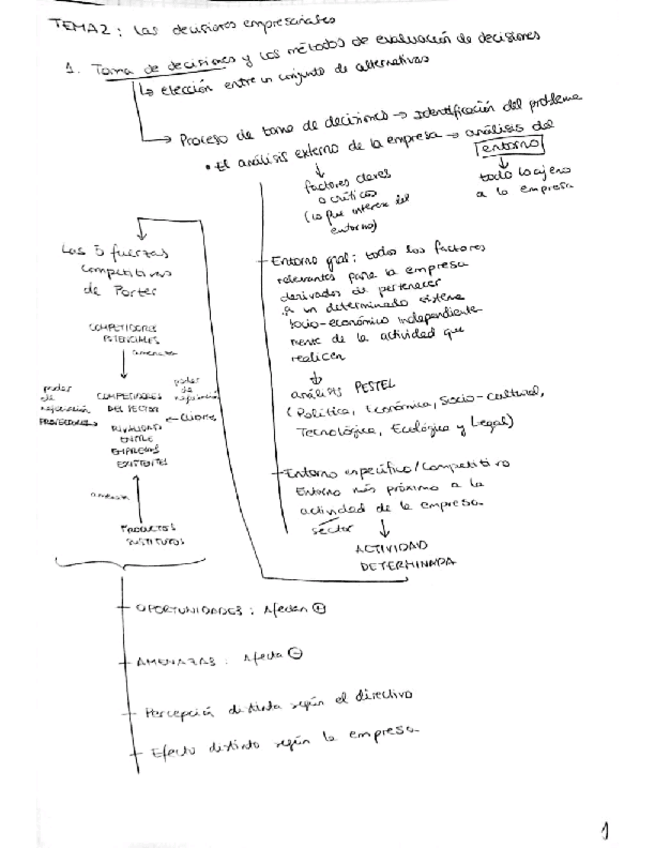 TEMA 2: Las decisiones empresariales
1. Toma de decisiones y los métodos de evaluación de decisiones
↳ elección entre un conjunto de alternativas
→ Proceso de toma de decisiones → Identificación del problema
• El análisis externo de la empresa → análisis del
entorno
↓
todo lo ajeno
a la empresa
↓
factores claves
o críticos
(lo que interesa del
entorno)
Entorno gral: todos los factores
relevantes para la empresa
derivados de pertenecer
a un determinado sistema
socio-económico independiente
mente de la actividad que
realicen
↓
análisis PESTEL
(Política, Económica, Socio-cultural,
Tecnológica, Ecológica y Legal)
Entorno específico/Competitivo
Entorno más próximo a la
actividad de la empresa
sector
↓
ACTIVIDAD
DETERMINADA
Las 5 fuerzas
competitivas
de Porter
COMPETIDORES
POTENCIALES
↓ amenaza
poder
de
negociación
PROVEEDORES →
COMPETIDORES
DEL SECTOR
RIVALIDAD
ENTRE
EMPRESAS
EXISTENTES
poder
de
negociación
← CLIENTES
amenaza ↑
PRODUCTOS
SUSTITUTOS
OPORTUNIDADES: Afectan ⊕
AMENAZAS: Afecta ⊖
Percepción distinta según el directivo
Efecto distinto según la empresa
1